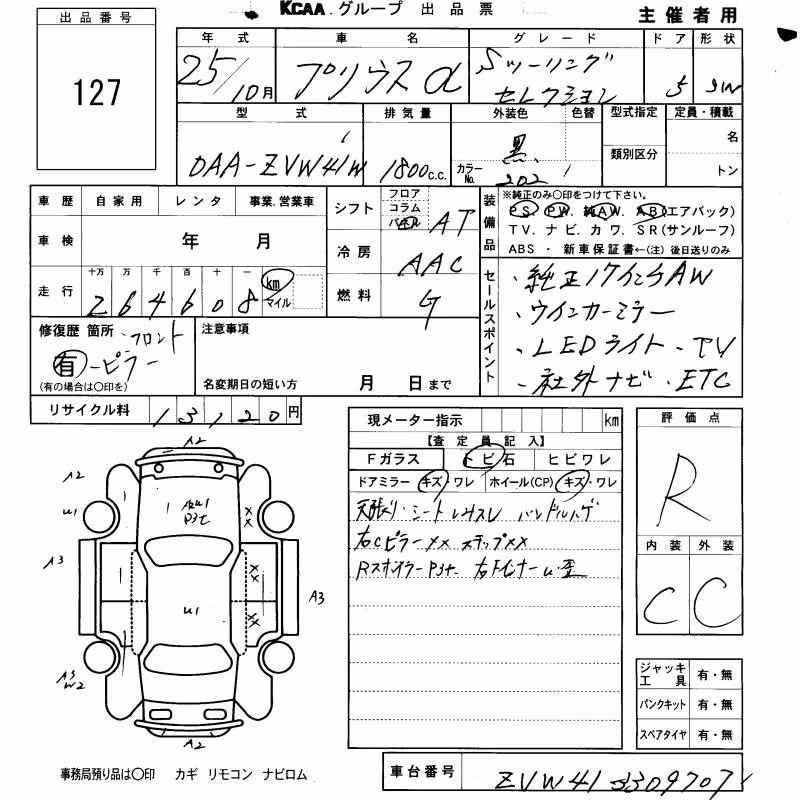 KCAA.グループ 出品票
主催者用
出品番号
127
年式 車名 グレード ドア 形状
25/10月 プリウスα Sツーリング セレクション 5 SW
型式 排気量 外装色 色替 型式指定 定員・積載
DAA-ZVW41W 1800c.c. 黒 カラーNo. 202 類別区分 名 トン
車歴 自家用 レンタ 事業.営業車
車検 年 月
走行 十万 万 千 百 十 一 km マイル
2 6 4 6 0 8
シフト フロア コラム パネル AT
冷房 AAC
燃料 G
装備品 ※純正のみ〇印をつけて下さい。
PS. PW. 純AW. AB(エアバック)
TV. ナビ. カワ. SR(サンルーフ)
ABS ・ 新車保証書←(注)後日送りのみ
セールスポイント
・純正17インチAW
・ウインカーミラー
・LEDライト ・TV
・社外ナビ ・ETC
修復歴 箇所 ・フロント
有 -ピラー
(有の場合は〇印を)
注意事項
名変期日の短い方 月 日まで
リサイクル料 13120円
現メーター指示 km
【査定員記入】
Fガラス トビ石 ヒビワレ
ドアミラー キズ・ワレ ホイール(CP) キズ・ワレ
天張り・シートレミスレ ハンドルハゲ
右Cピラー×× ステップ××
Rスポイラー P3セ
評価点
R
内装 外装
C C
ジャッキ工具 有・無
パンクキット 有・無
スペアタイヤ 有・無
A2
A2
U1
A3
A3
A3
W2
U1
A2
P3セ
××
××
××
事務局預り品は〇印 カギ リモコン ナビロム
車台番号 ZVW41-3309707